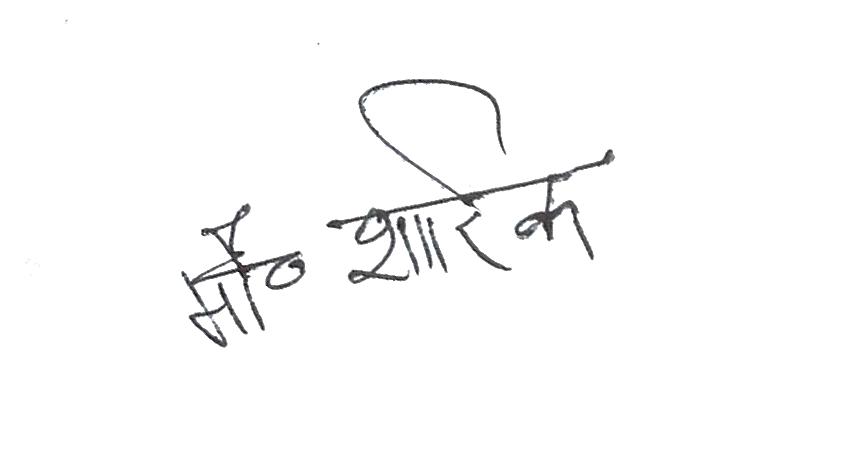 मो० शारिक